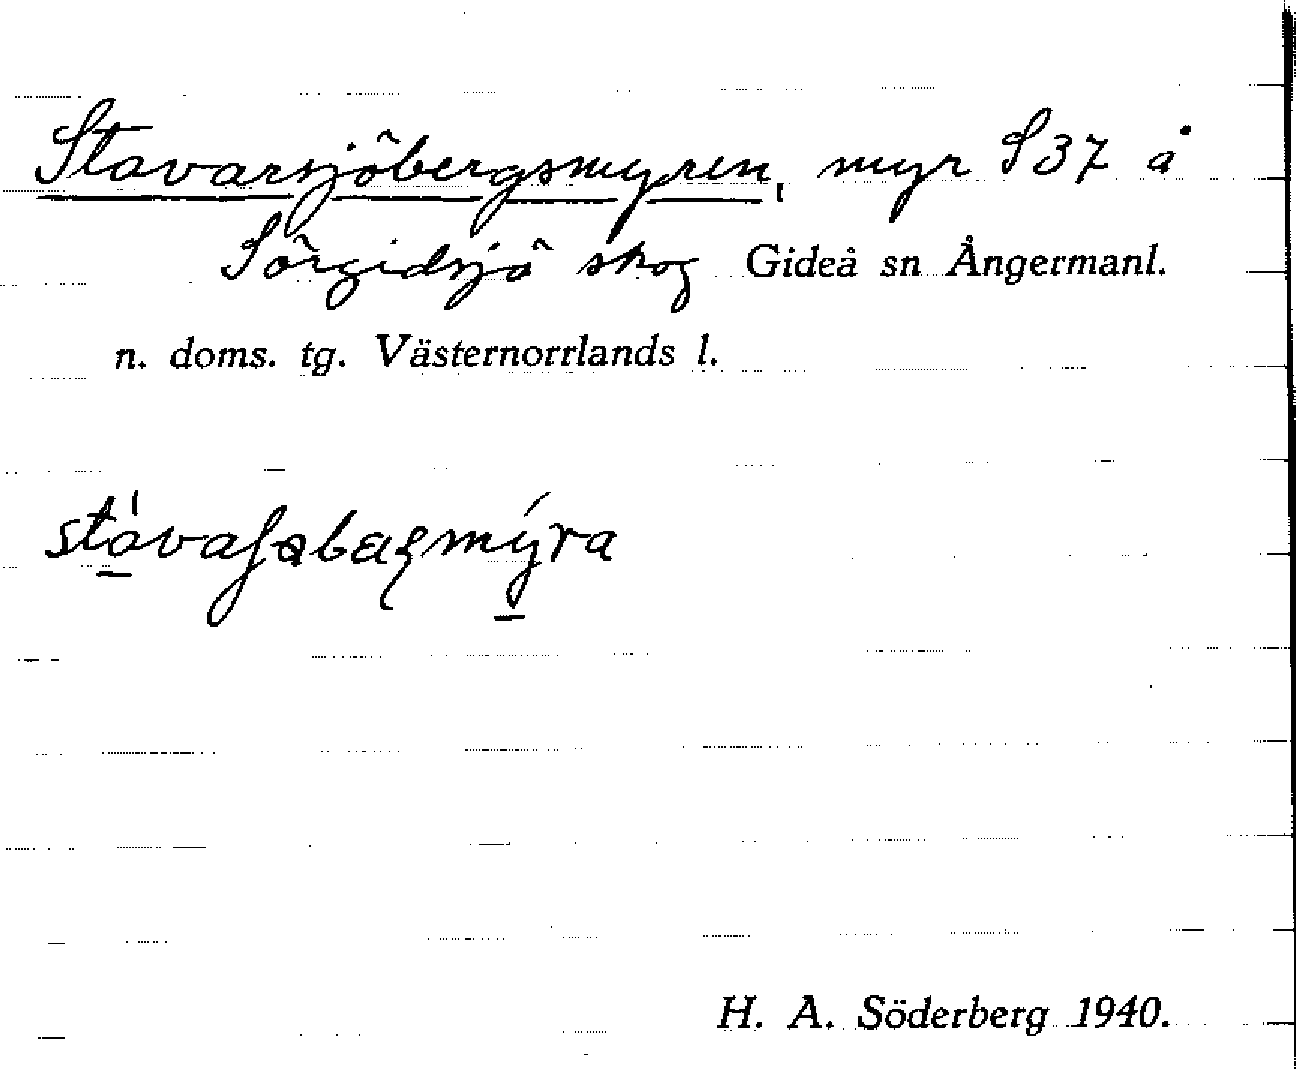 Stavarsjöbergsmyren, myr S37 å
Sörgidsjö skog Gideå sn Ångermanl.
n. doms. tg. Västernorrlands l.
H. A. Söderberg 1940.